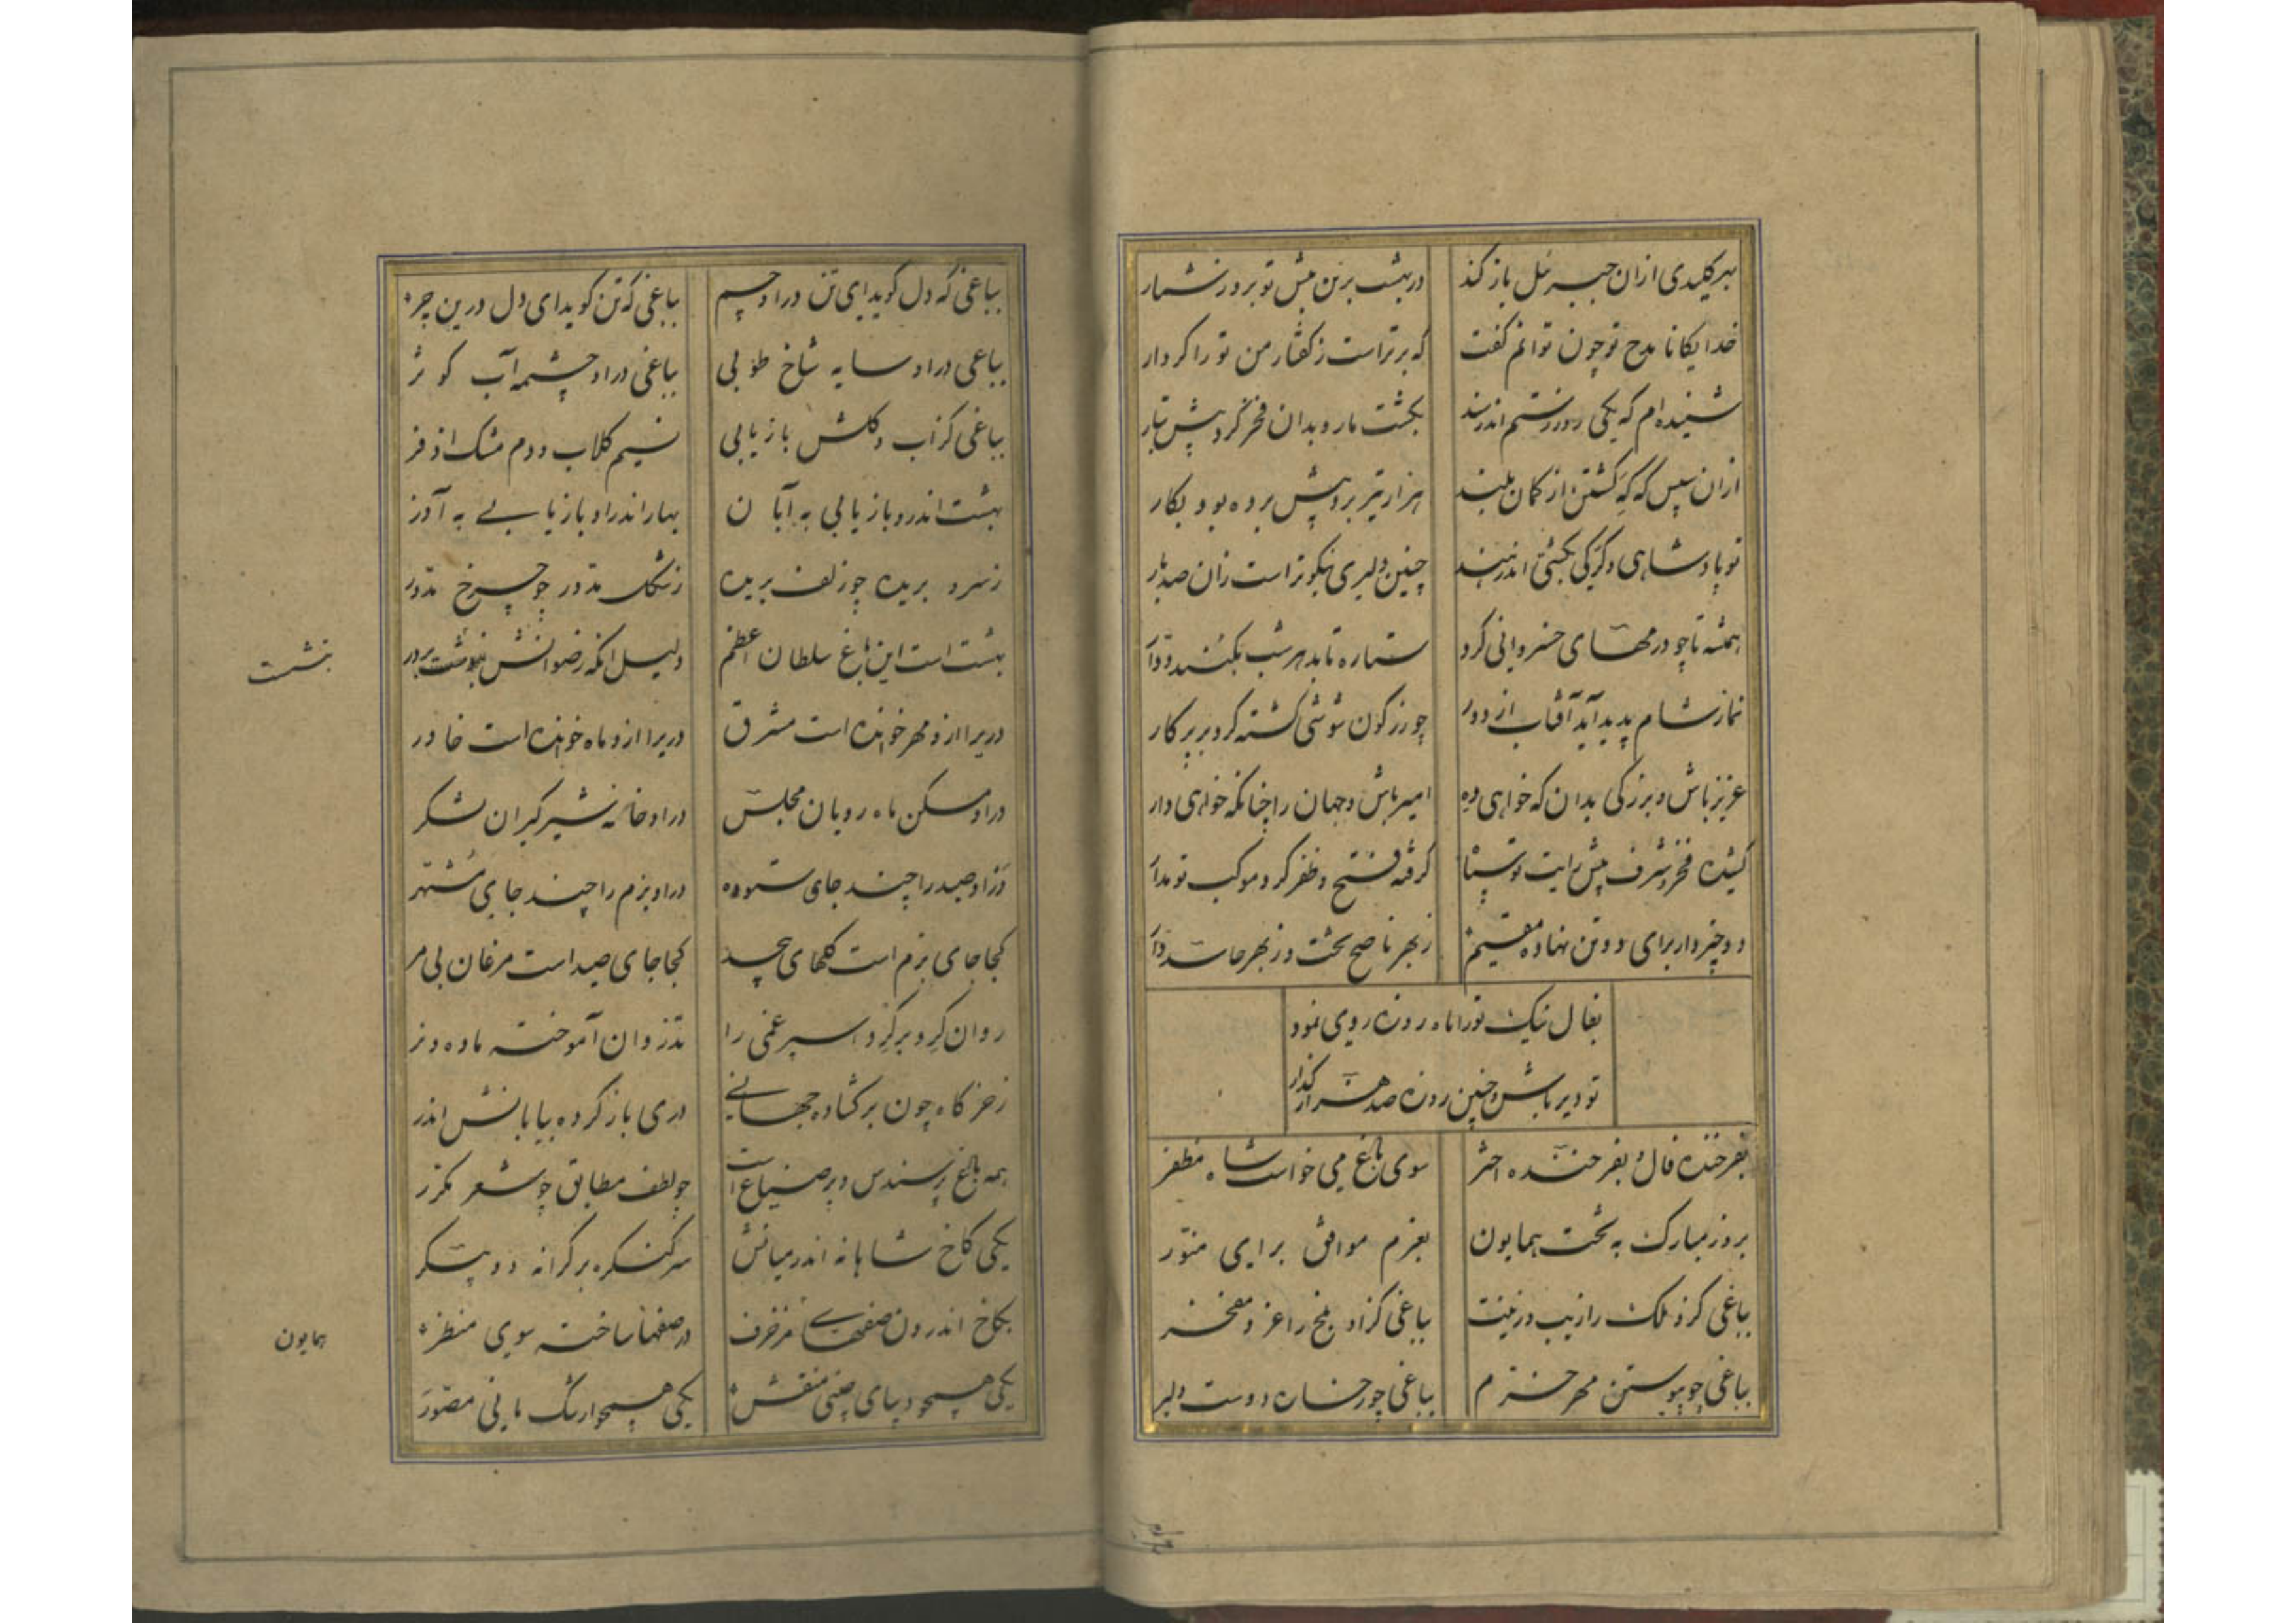 بهر کلیدی ازان جبرئیل باز کند
در بهشت برین پیش تو بروز شمار
خدایگانا مدح تو چون توانم گفت
که برتراست ز گفتار من تو را کردار
شنیده‌ام که یکی روز رستم اندر هند
بکشت مار و بدان فخر کرد پیش تبار
ازان سپس که که کشتن از کمان بلند
هزار تیر برو پیش برده بود بکار
تو پادشاهی و کرکی بکشتی اندر هند
چنین دلیری نیکوتر است زان صد بار
همیشه تا چو درمهای خسروانی گرد
ستاره تابد هر شب ز کنبد دوار
نماز شام پدید آید آفتاب از دور
چو زرگون شوشی گشته گرد بر پرگار
عزیز باش و بزرگی بدان که خواهی ده
امیر باش و جهان را چنانکه خواهی دار
کشیده فخر و شرف پیش رایت تو سپاه
گرفته فتح و ظفر گرد موکب تو مدار
دو چیز دار برای دو تن نهاده مقیم
ز بهر ناصح تخت و ز بهر حاسد دار
بفال نیک تو را ماه روزه روی نمود
تو دیر باش و چنین روزه صد هزار گذار
بفرخنده فال و بفرخنده اختر
سوی باغ می خواست شاه مظفر
بروز مبارک به بخت همایون
بعزم موافق برای منور
بباغی کزو ملک را زیب و زینت
بباغی کزاو بلخ را عز و مفخر
بباغی چو پیوستن مهر خرم
بباغی چو رخسارۀ دوست دلبر
بباغی که دل گوید ای تن در او چم
بباغی که تن گوید ای دل درین چر
بباغی در او سایه شاخ طوبی
بباغی در او چشمه آب کوثر
بباغی کز آب و گلش باز یابی
نسیم گلاب و دم مشک اذفر
بهشت اندرو بازیابی به آبان
بهار اندر او بازیابی به آذر
ز سرو بریده چو زلف بریده
ز شکل مدور چو چرخ مدور
بهشت است این باغ سلطان اعظم
دلیل آنکه رضوانش بنوشت بر در
بنشست
دری را ازو مهر خوانده است مشرق
دری را ازو ماه خوانده است خاور
در او مسکن ماه رویان مجلس
در او خانه شیرگیران لشکر
در او صید را چند جای ستوده
در او بزم را چند جای مشتهر
کجا جای بزم است گلهای بیحد
کجا جای صید است مرغان بی مر
روان گرد بر گرد اسپرغمی را
تذروان آموخته ماده و نر
ز خرگاه چون برگشاده جهانی
دری باز کرده بیابانش اندر
همه باغ پر سندس و پر صناعت
چو لطف مطابق چو شعر مکرر
یکی کاخ شاهانه اندر میانش
سر کنگره بر کرانه دو پیکر
بکاخ اندرون صفهای مزخرف
در صفها ساخته سوی منظر
همایون
یکی همچو دیبای چینی منقش
یکی همچو ارتنگ مانی مصور